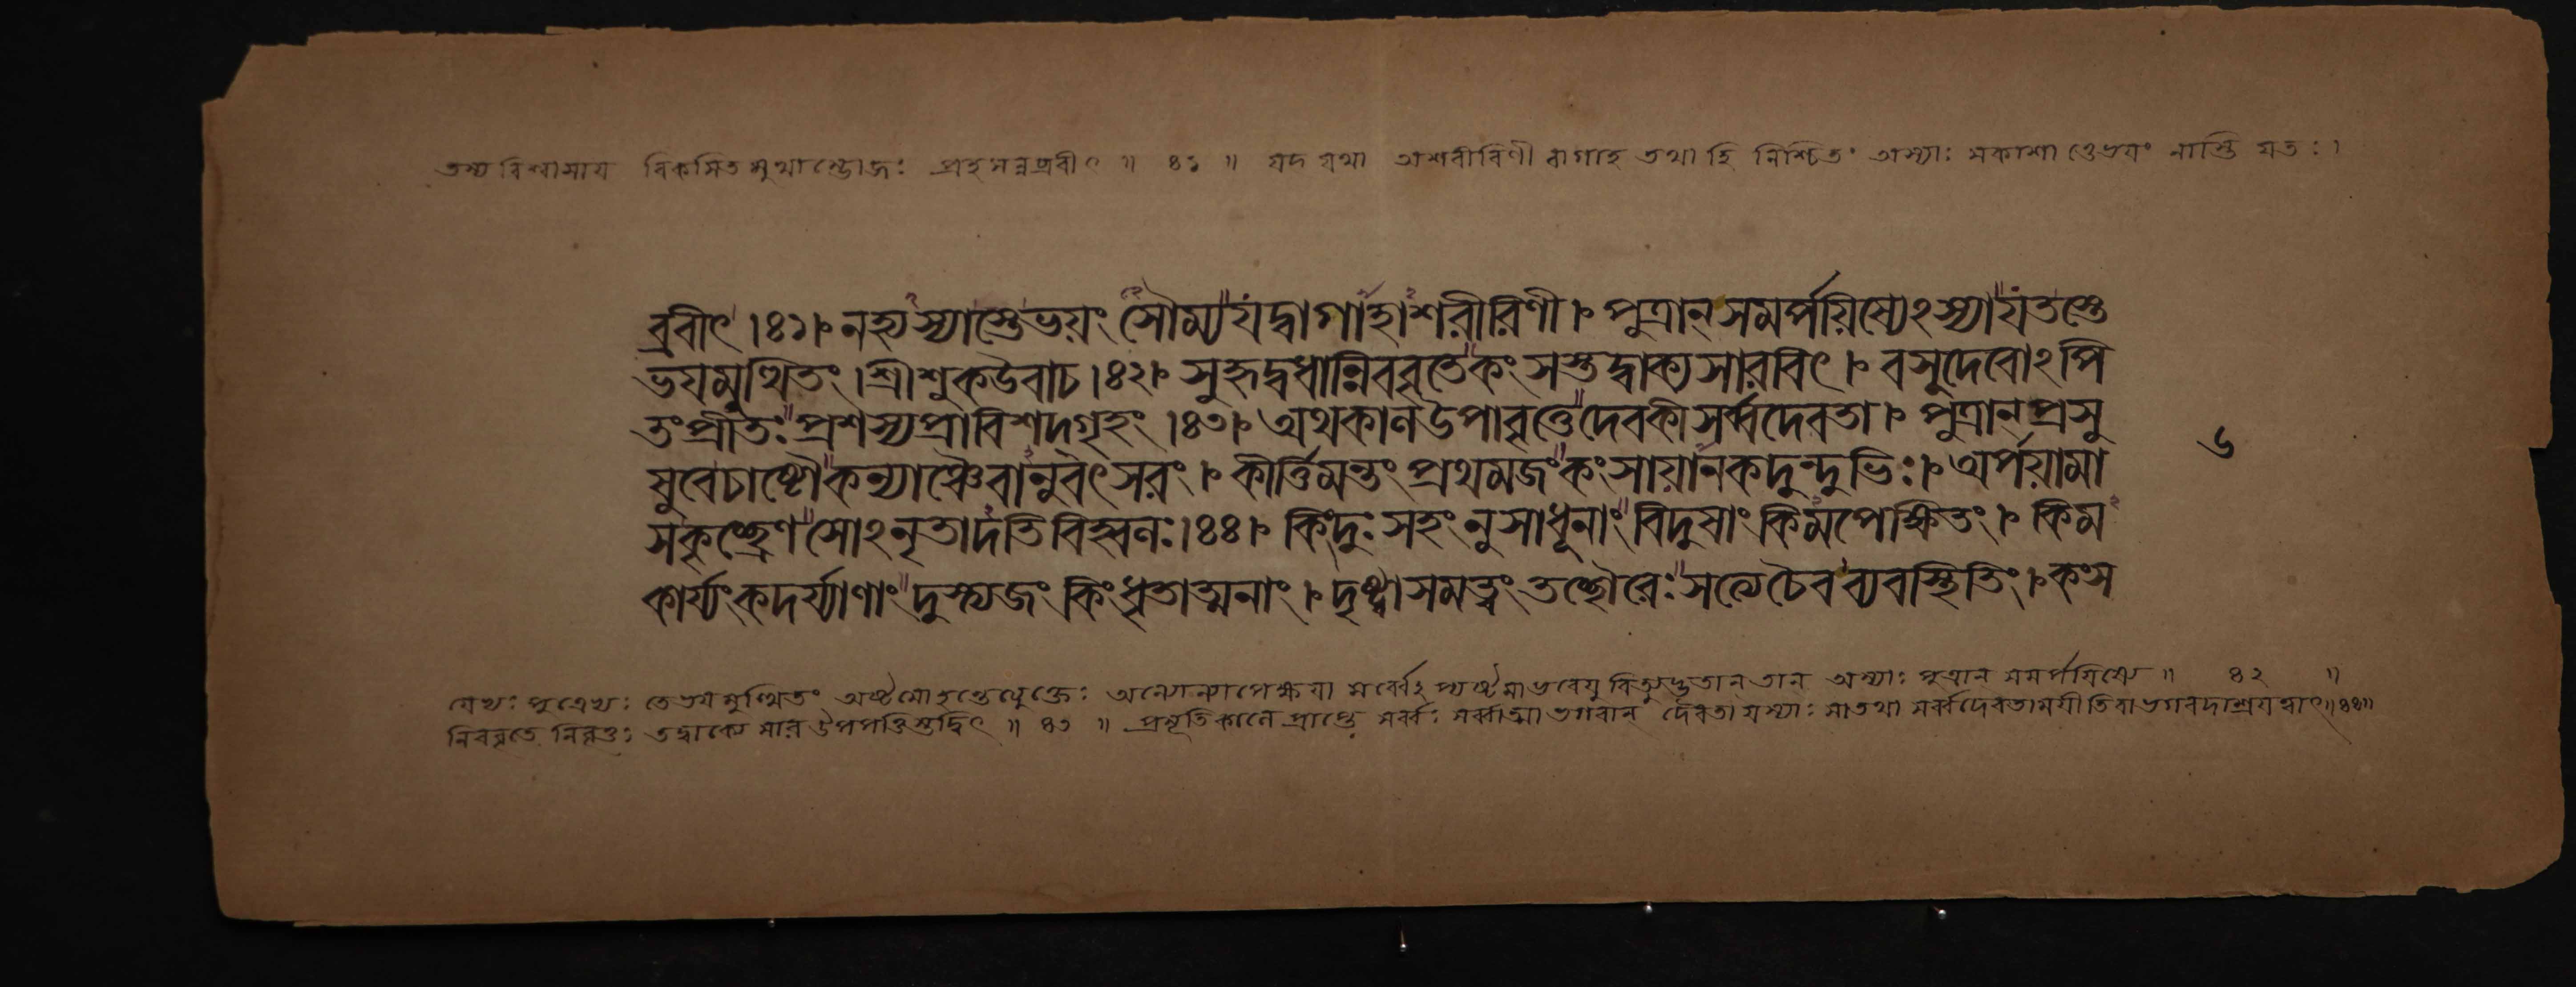 তস্য বিশ্বাসায বিকসিত মুখাম্ভোজঃ প্রহসন্নব্রবীৎ ॥ ৪১ ॥ যদ যথা অশরীরিণী বাগাহ তথা হি নিশ্চিতং অস্যাঃ সকাশাত্তেভযং নাস্তি যতঃ।
ব্রবীৎ ।৪১। নহ্যস্যাস্তেভয়ং সৌম্যযদ্বাগাহাশরীরিণী । পুত্রান্সমর্পয়িষ্যেঽস্যাযতস্তে
ভযমুত্থিতং । শ্রীশুকউবাচ ।৪২। সুহৃদ্বধান্নিববৃতেকংসস্তদ্বাক্যসারবিৎ । বসুদেবোঽপি
তংপ্রীতঃপ্রশস্যপ্রাবিশদ্গৃহং ।৪৩। অথকালউপাবৃত্তেদেবকীসর্ব্বদেবতা । পুত্রান্প্রসু
ষুবেচাষ্টৌকন্যাঞ্চৈবানুবৎসরং । কীর্ত্তিমন্তং প্রথমজংকংসায়ানকদুন্দুভিঃ। অর্পয়ামা
সকৃচ্ছ্রেণসোঽনৃতাদতিবিহ্বলঃ।৪৪। কিংদুঃসহং নুসাধূনাং বিদুষাং কিমপেক্ষিতং । কিম
কার্য্যংকদর্য্যাণাং দুস্ত্যজং কিংধৃতাত্মনাং । দৃষ্ট্বাসমত্বং তচ্ছৌরেঃ সত্যেচৈবব্যবস্থিতিং । কংস
৬
পুত্রেভ্যঃ তেভযমুত্থিতং অষ্টমোহন্তেত্যুক্তেঃ অন্যোন্যাপেক্ষযা সর্ব্বেঽপ্যষ্টমাভবেযু তান্ অস্যাঃ পুত্রান সমর্পযিষ্যে ॥ ৪২ ॥
নিববৃতে নিবৃত্তঃ তদ্বাক্যে সার উপপত্তিস্তদ্বিৎ ॥ ৪৩ ॥ প্রসূতিকালে প্রাপ্তে সর্ব্বঃ সর্ব্বাত্মা ভগবান্ দেবতা যস্যাঃ সাতথা সর্ব্বদেবতামযীতিবাভগবদাশ্রযত্বাৎ॥৪৪॥